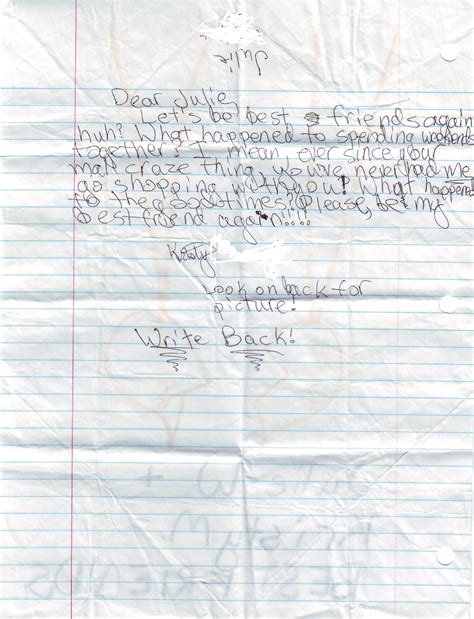 Julie
Dear Julie,
Let's be best friends again
huh? What happened to spending weekends
together? I mean ever since your
mall craze thing you've never had me
go shopping with you! What happened
to the good times? Please, be my
best friend again!!!!
Kristy
Look on back for
picture!
Write Back!